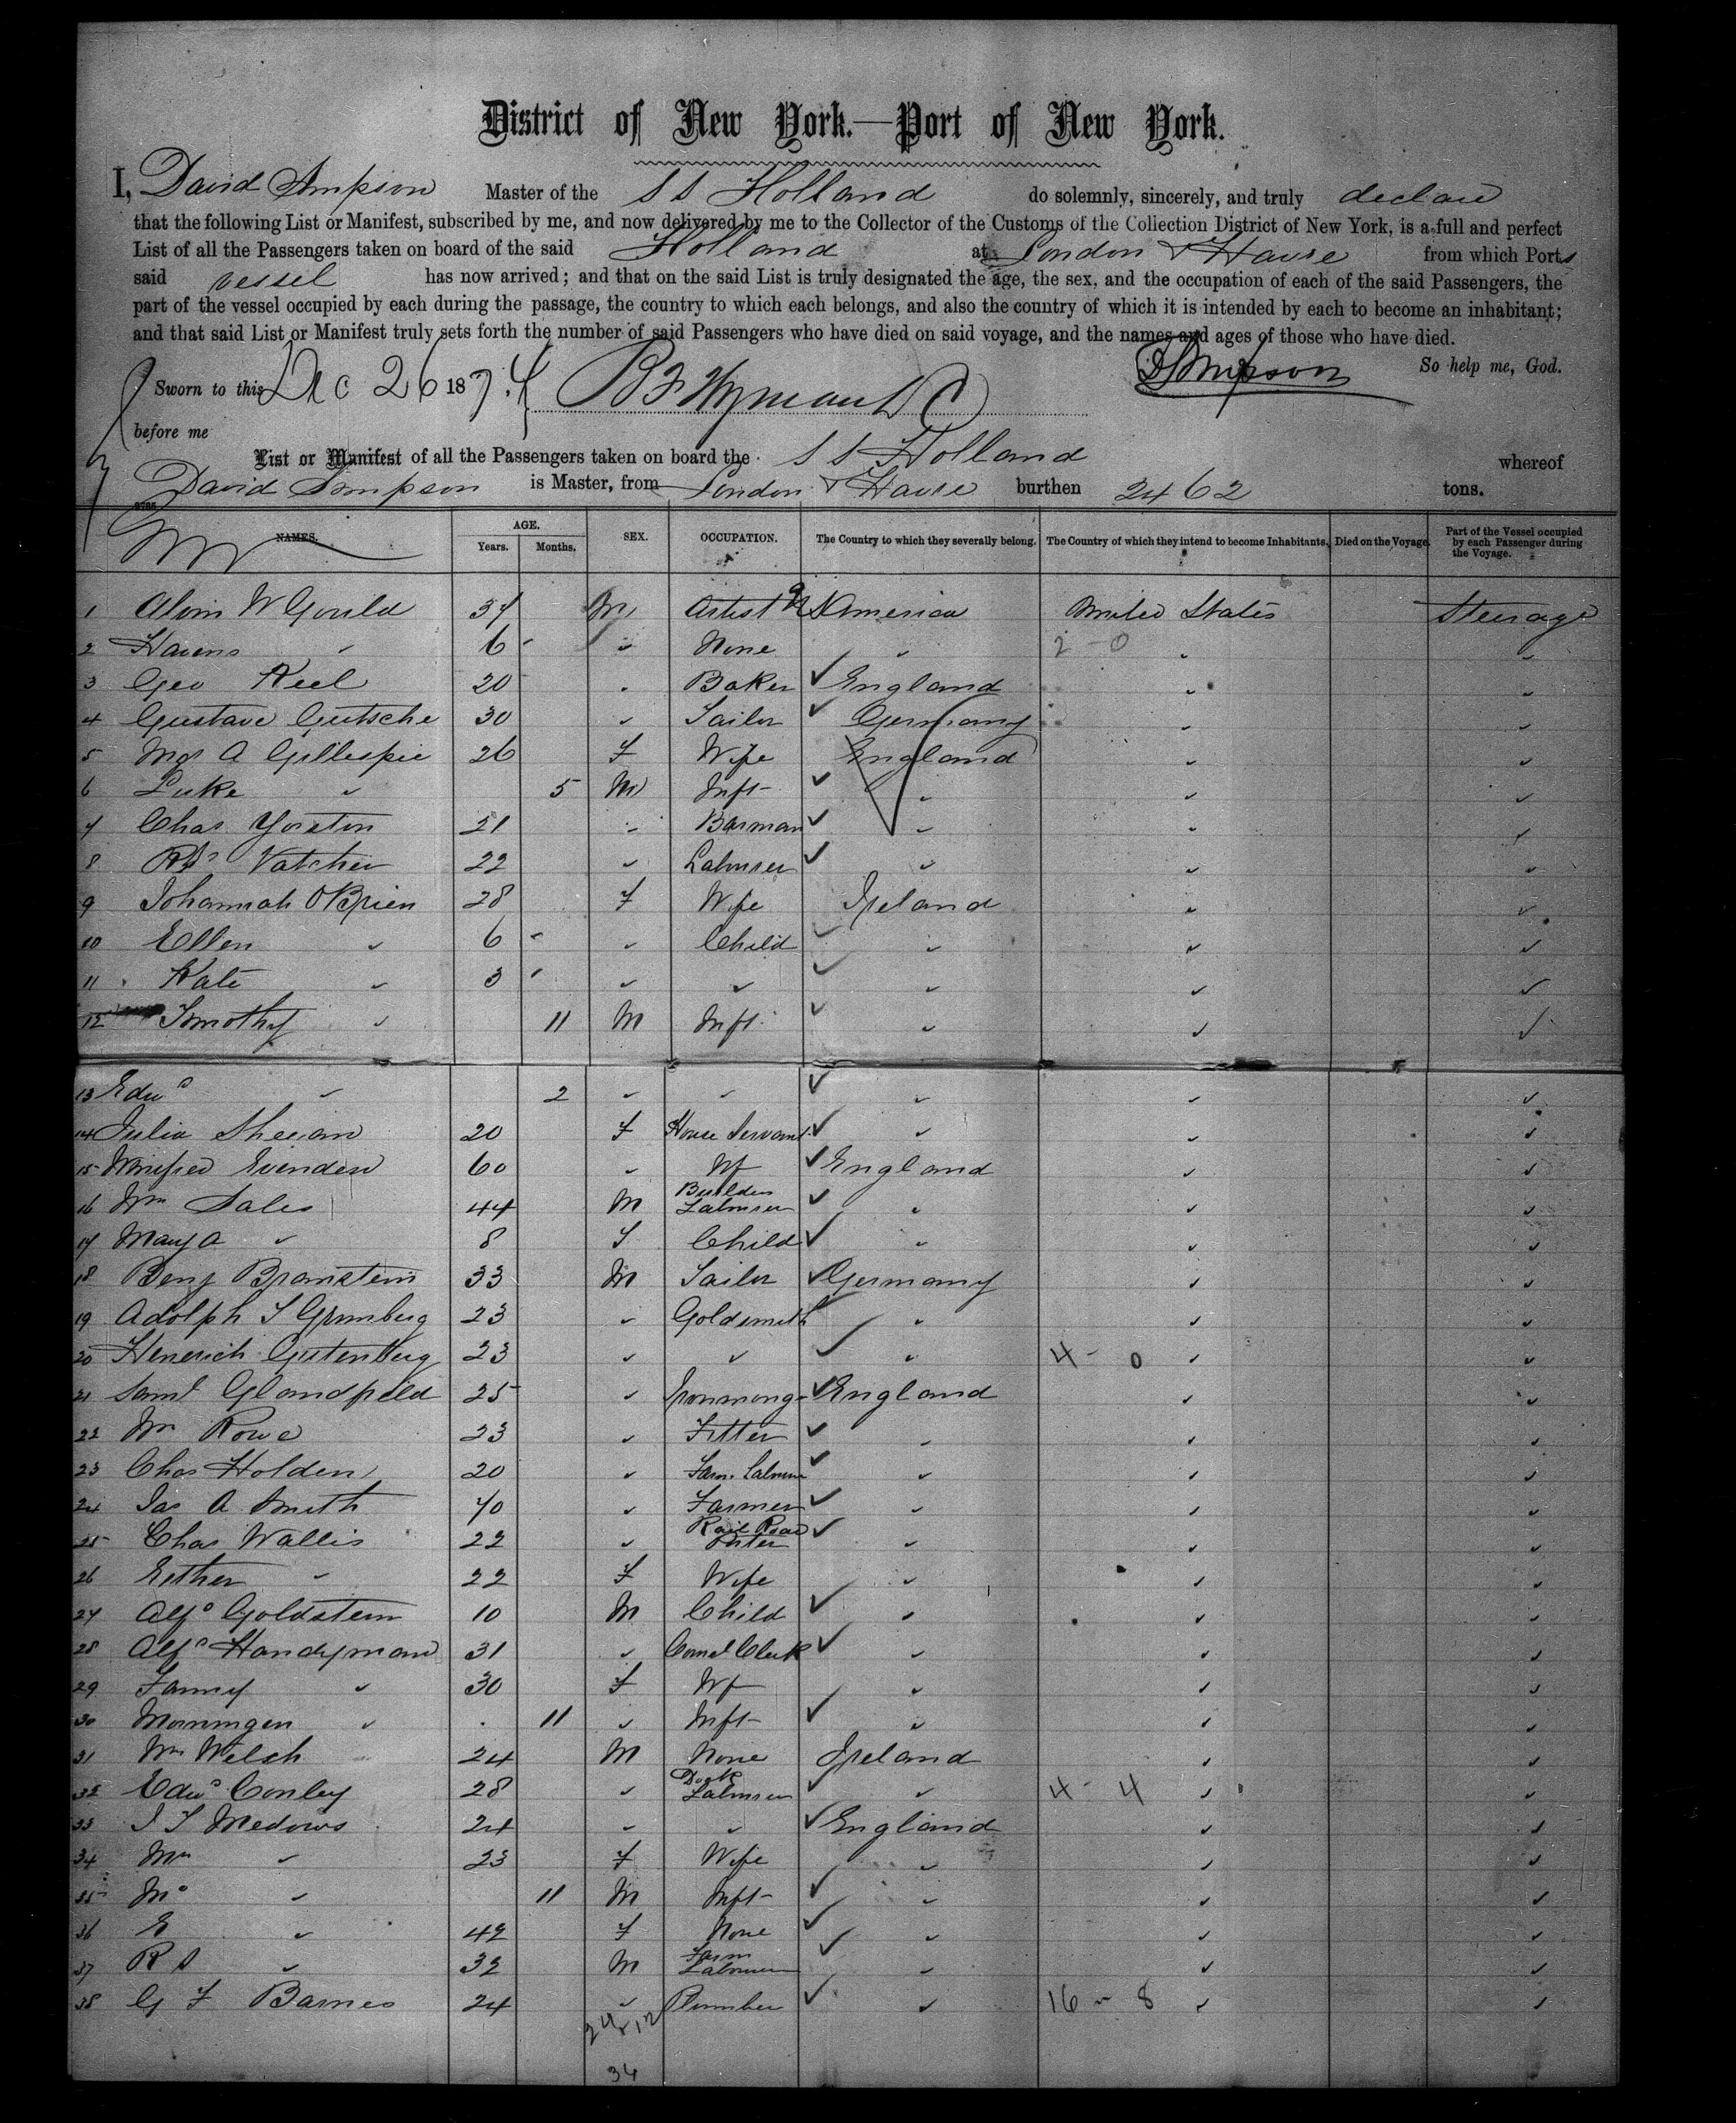 District of New York.—Port of New York.
I, David Simpson Master of the S S Holland do solemnly, sincerely, and truly declare
that the following List or Manifest, subscribed by me, and now delivered by me to the Collector of the Customs of the Collection District of New York, is a full and perfect
List of all the Passengers taken on board of the said Holland at London & Havre from which Ports
said vessel has now arrived; and that on the said List is truly designated the age, the sex, and the occupation of each of the said Passengers, the
part of the vessel occupied by each during the passage, the country to which each belongs, and also the country of which it is intended by each to become an inhabitant;
and that said List or Manifest truly sets forth the number of said Passengers who have died on said voyage, and the names and ages of those who have died.
So help me, God.
D Simpson
Sworn to this Dec 26 1874
before me
List or Manifest of all the Passengers taken on board the S S Holland whereof
David Simpson is Master, from London & Havre burthen 2462 tons.
NAMES. AGE. Years. Months. SEX. OCCUPATION. The Country to which they severally belong. The Country of which they intend to become Inhabitants. Died on the Voyage. Part of the Vessel occupied by each Passenger during the Voyage.
1 Alvin W Gould 37 M Artist America United States Steerage
2 Havens " 6 " None " 2-0 " "
3 Geo Keel 20 " Baker England " "
4 Gustave Gutsche 30 " Tailor Germany " "
5 Mrs A Gillespie 26 F Wife England " "
6 Luke " 5 M Inft " " "
7 Chas Yorston 21 " Barman " " "
8 Vatcher 22 " Labourer " " "
9 Johannah OBrien 28 F Wife Ireland " "
10 Ellen " 6 " Child " " "
11 Kate " 3 " " " " "
12 Timothy " 11 M Inft " " "
13 Edwd " 2 " " " " "
14 Julia Sheean 20 F House Servant " " "
15 Winifred Evenden 60 " Wf England " "
16 Wm Sales 44 M Builders Labourer " " "
17 Mary A " 8 F Child " " "
18 Benj Bronstein 33 M Tailor Germany " "
19 Adolph S Grunberg 23 " Goldsmith " " "
20 Henerich Gutenberg 23 " " " 4-0 " "
21 Saml Glandfield 25 " Ironmonger England " "
22 Wm Rowe 23 " Fitter " " "
23 Chas Holden 20 " Farm Labourer " " "
24 Jas A Smith 40 " Farmer " " "
25 Chas Wallis 22 " Rail Road Porter " " "
26 Esther " 22 F Wife " " "
27 Alfd Goldstein 10 M Child " " "
28 Alfd Handyman 31 " Clerk " " "
29 Fanny " 30 F Wf " " "
30 " 11 " Inft " " "
31 Wm Welsh 24 M None Ireland " "
32 Edwd Conley 28 " Dock Labourer " 4-4 " "
33 J T Medows 24 " " England " "
34 Mrs " 23 F Wife " " "
35 " 11 M Inft " " "
36 E " 42 F None " " "
37 R S " 32 M Farm Labourer " " "
38 G F Barnes 24 " Plumber " 16-8 " "
24 & 12
34